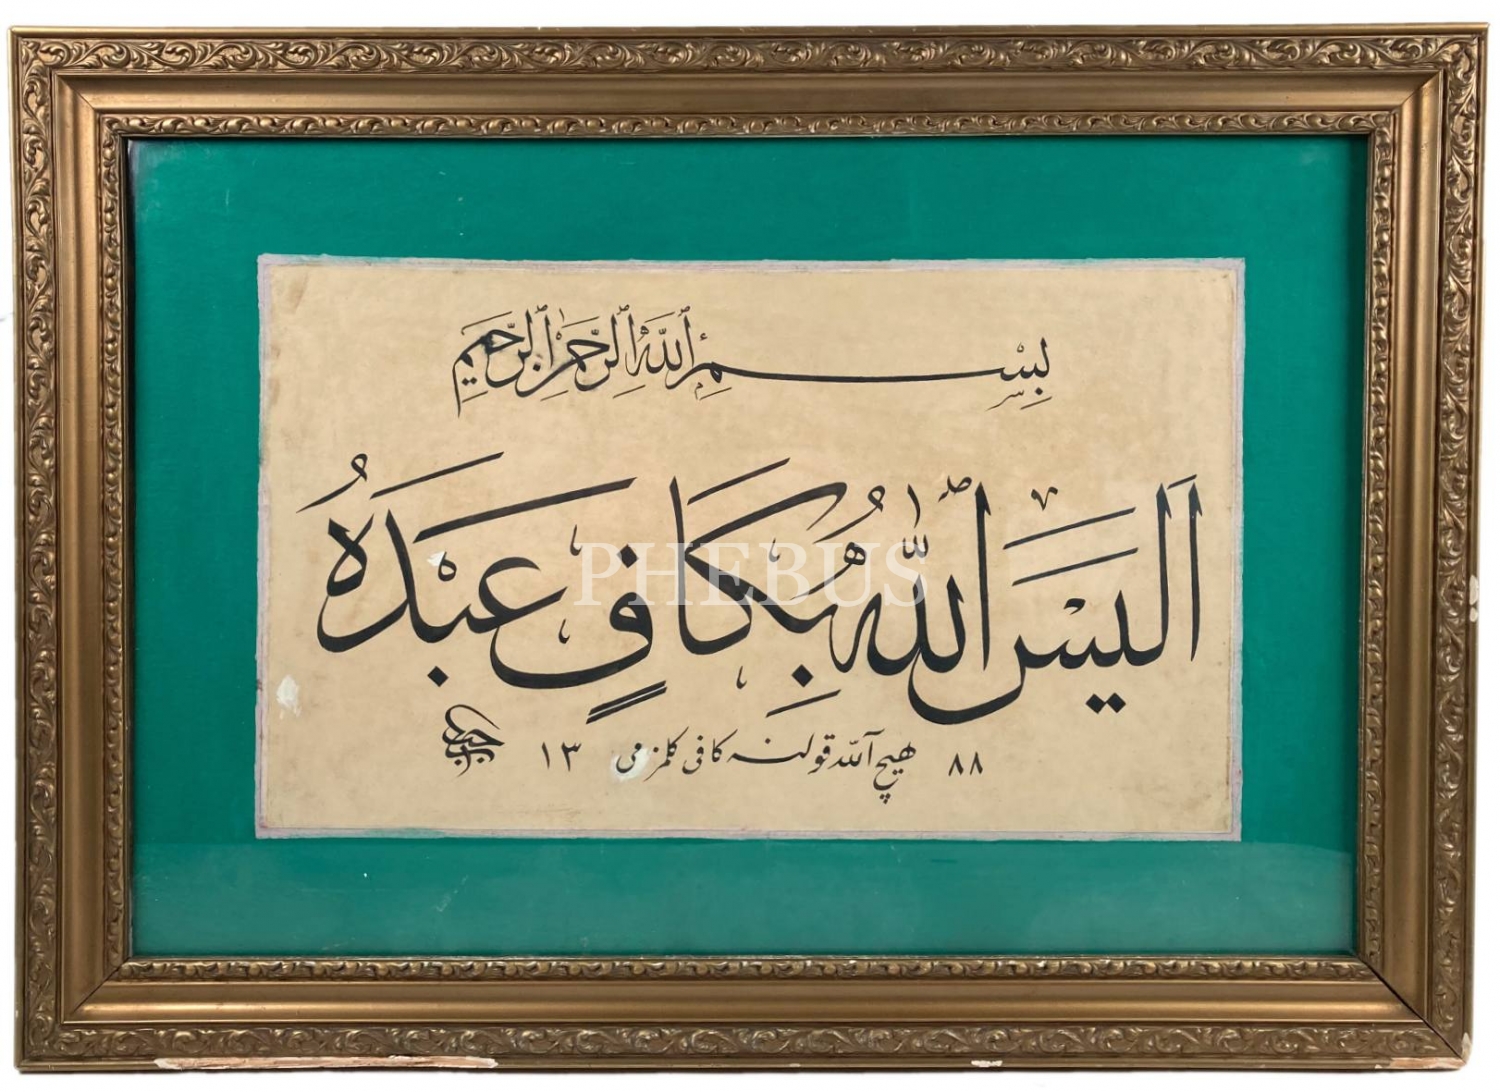 بِسْمِ اللهِ الرَّحْمٰنِ الرَّحِيمِ
اَلَيْسَ اللّٰهُ بِكَافٍ عَبْدَهُ
٨٨ هيچ آلله قولنه كافى كلمزمى ١٣
PHEBUS